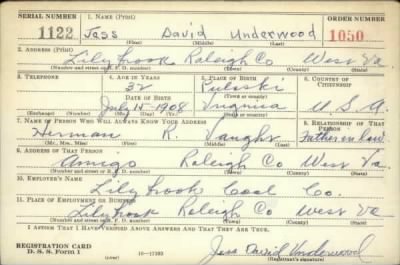 SERIAL NUMBER 1. NAME (Print) ORDER NUMBER
1122 Jess David Underwood 1050
(First) (Middle) (Last)
2. ADDRESS (Print)
Lilybrook Raleigh Co West Va
(Number and street or R. F. D. number) (Town) (County) (State)
3. TELEPHONE 4. AGE IN YEARS 5. PLACE OF BIRTH 6. COUNTRY OF CITIZENSHIP
32 Pulaski
DATE OF BIRTH (Town or county)
July 15 1908 Virginia U.S.A.
(Exchange) (Number) (Mo.) (Day) (Yr.) (State or country)
7. NAME OF PERSON WHO WILL ALWAYS KNOW YOUR ADDRESS 8. RELATIONSHIP OF THAT PERSON
Herman R. Vaught Father in law
(Mr., Mrs., Miss) (First) (Middle) (Last)
9. ADDRESS OF THAT PERSON
Amigo Raleigh Co West Va.
(Number and street or R. F. D. number) (Town) (County) (State)
10. EMPLOYER'S NAME
Lilybrook Coal Co.
11. PLACE OF EMPLOYMENT OR BUSINESS
Lilybrook Raleigh Co West Va
(Number and street or R. F. D. number) (Town) (County) (State)
I AFFIRM THAT I HAVE VERIFIED ABOVE ANSWERS AND THAT THEY ARE TRUE.
REGISTRATION CARD
D. S. S. Form 1 (over) 16—17105 Jess David Underwood
(Registrant's signature)